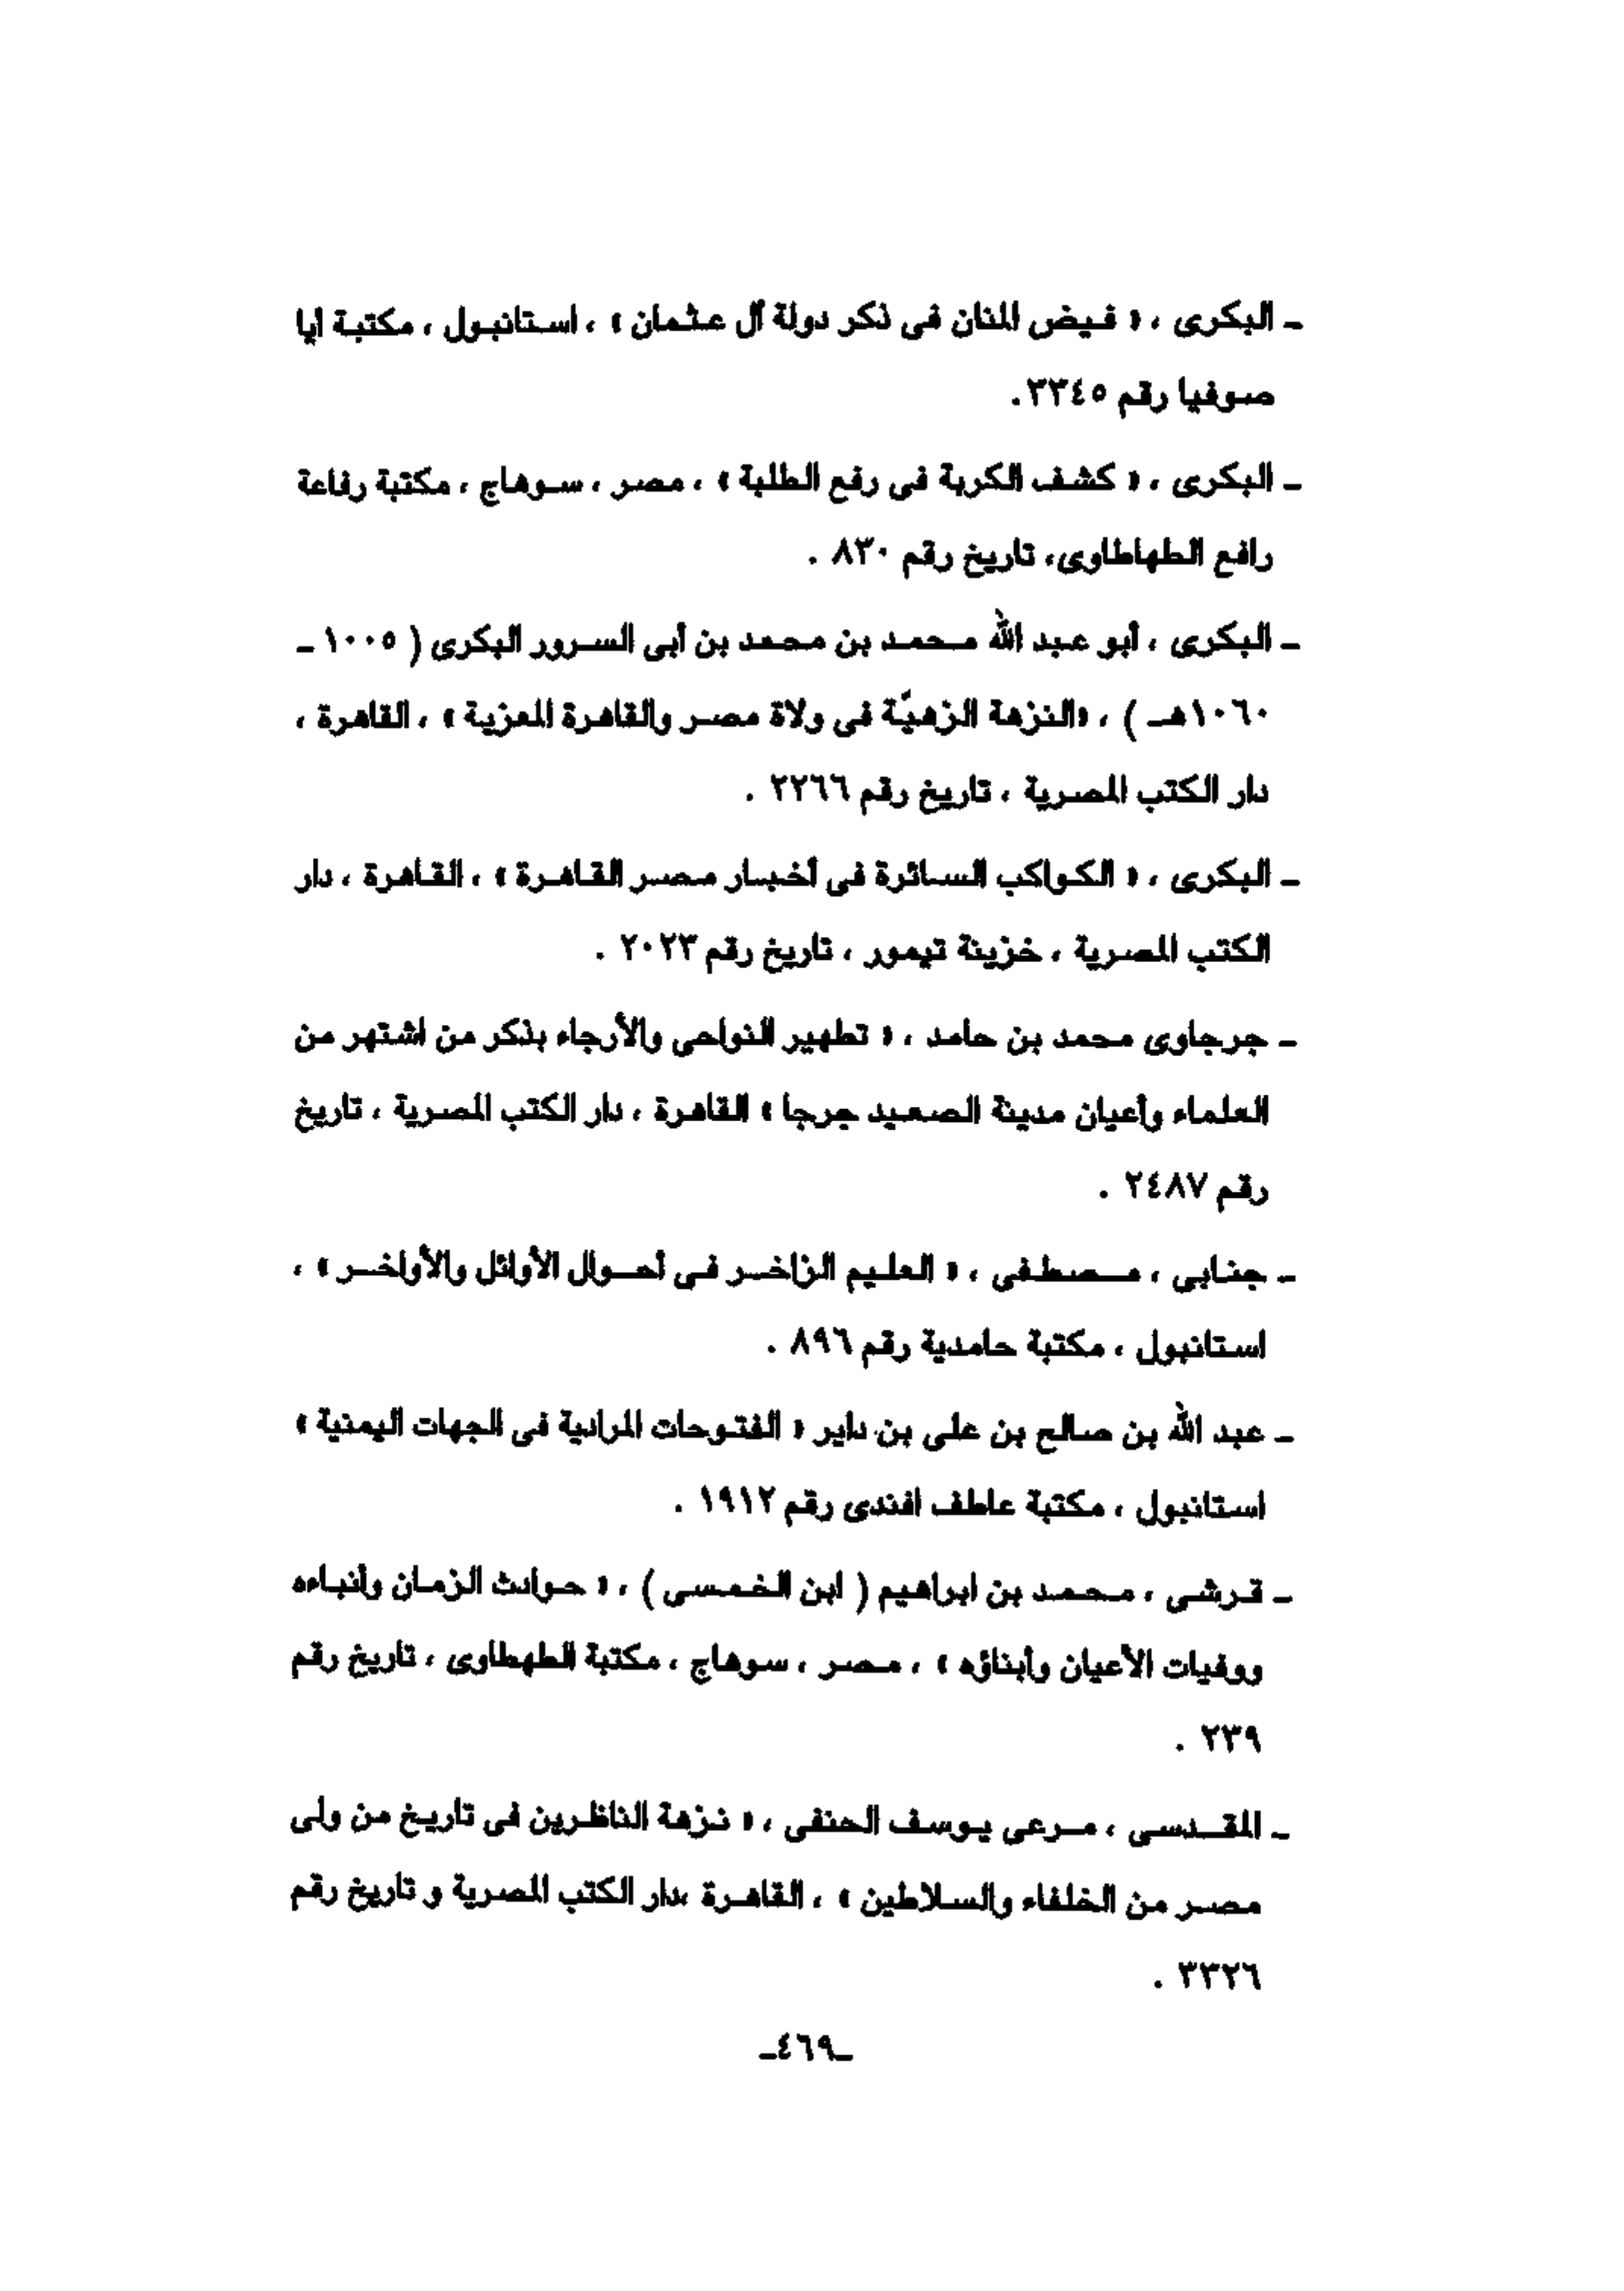 ـ البكرى ، « فيض المنان فى ذكر دولة آل عثمان » ، استانبول ، مكتبة ايا
صوفيا رقم ٣٣٤٥.
ـ البكرى ، « كشف الكربة فى رفع الطلبة » ، مصر ، سوهاج ، مكتبة رفاعة
رافع الطهاطاوى، تاريخ رقم ٨٣٠ .
ـ البكرى ، أبو عبد الله محمد بن محمد بن أبى السرور البكرى ( ١٠٠٥ ـ
١٠٦٠هـ ) ، «النزهة الزهيّة فى ولاة مصر والقاهرة المعزية » ، القاهرة ،
دار الكتب المصرية ، تاريخ رقم ٢٢٦٦ .
ـ البكرى ، « الكواكب السائرة فى أخبار مصر القاهرة » ، القاهرة ، دار
الكتب المصرية ، خزينة تيمور ، تاريخ رقم ٢٠٢٣ .
ـ جرجاوى محمد بن حامد ، « تطهير النواحى والأرجاء بذكر من اشتهر من
العلماء وأعيان مدينة الصعيد جرجا » القاهرة ، دار الكتب المصرية ، تاريخ
رقم ٢٤٨٧ .
ـ جنابى ، مصطفى ، « العليم الزاخر فى أحوال الأوائل والأواخر » ،
استانبول ، مكتبة حامدية رقم ٨٩٦ .
ـ عبد الله بن صالح بن على بن داير « الفتوحات المرادية فى الجهات اليمنية »
استانبول ، مكتبة عاطف افندى رقم ١٩١٢ .
ـ قرشى ، محمد بن ابراهيم ( ابن الخمسى ) ، « حوادث الزمان وأنباءه
ووفيات الأعيان وأبناؤه » ، مصر ، سوهاج ، مكتبة الطهطاوى ، تاريخ رقم
٢٣٩ .
ـ المقدسى ، مرعى يوسف الحنفى ، « نزهة الناظرين فى تاريخ من ولى
مصر من الخلفاء والسلاطين » ، القاهرة ،دار الكتب المصرية و تاريخ رقم
٣٣٢٦ .
ـ٤٦٩ـ